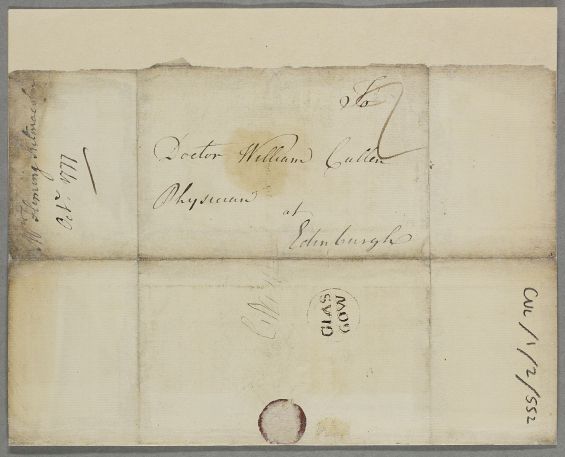 To
Doctor William Cullen
Physician
at
Edinburgh
Mr Fleming Kilmacolm
Octr. 1777
GLAS
GOW
CUL/1/2/552